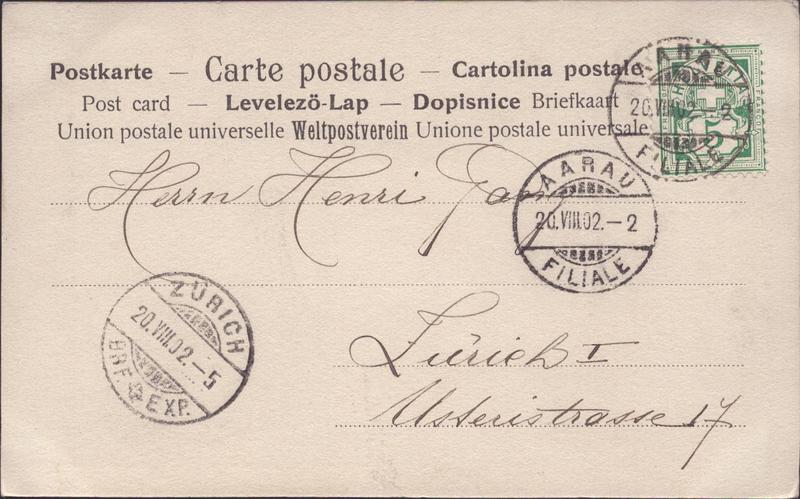 Postkarte — Carte postale — Cartolina postale
Post card — Levelezö-Lap — Dopisnice Briefkaart
Union postale universelle Weltpostverein Unione postale universale
AARAU
20.VIII.02.-2
FILIALE
5
Herrn Henri
AARAU
20.VIII.02.-2
FILIALE
ZÜRICH
20.VIII.02.-5
BRF. EXP.
Zürich I
Usteristrasse 17